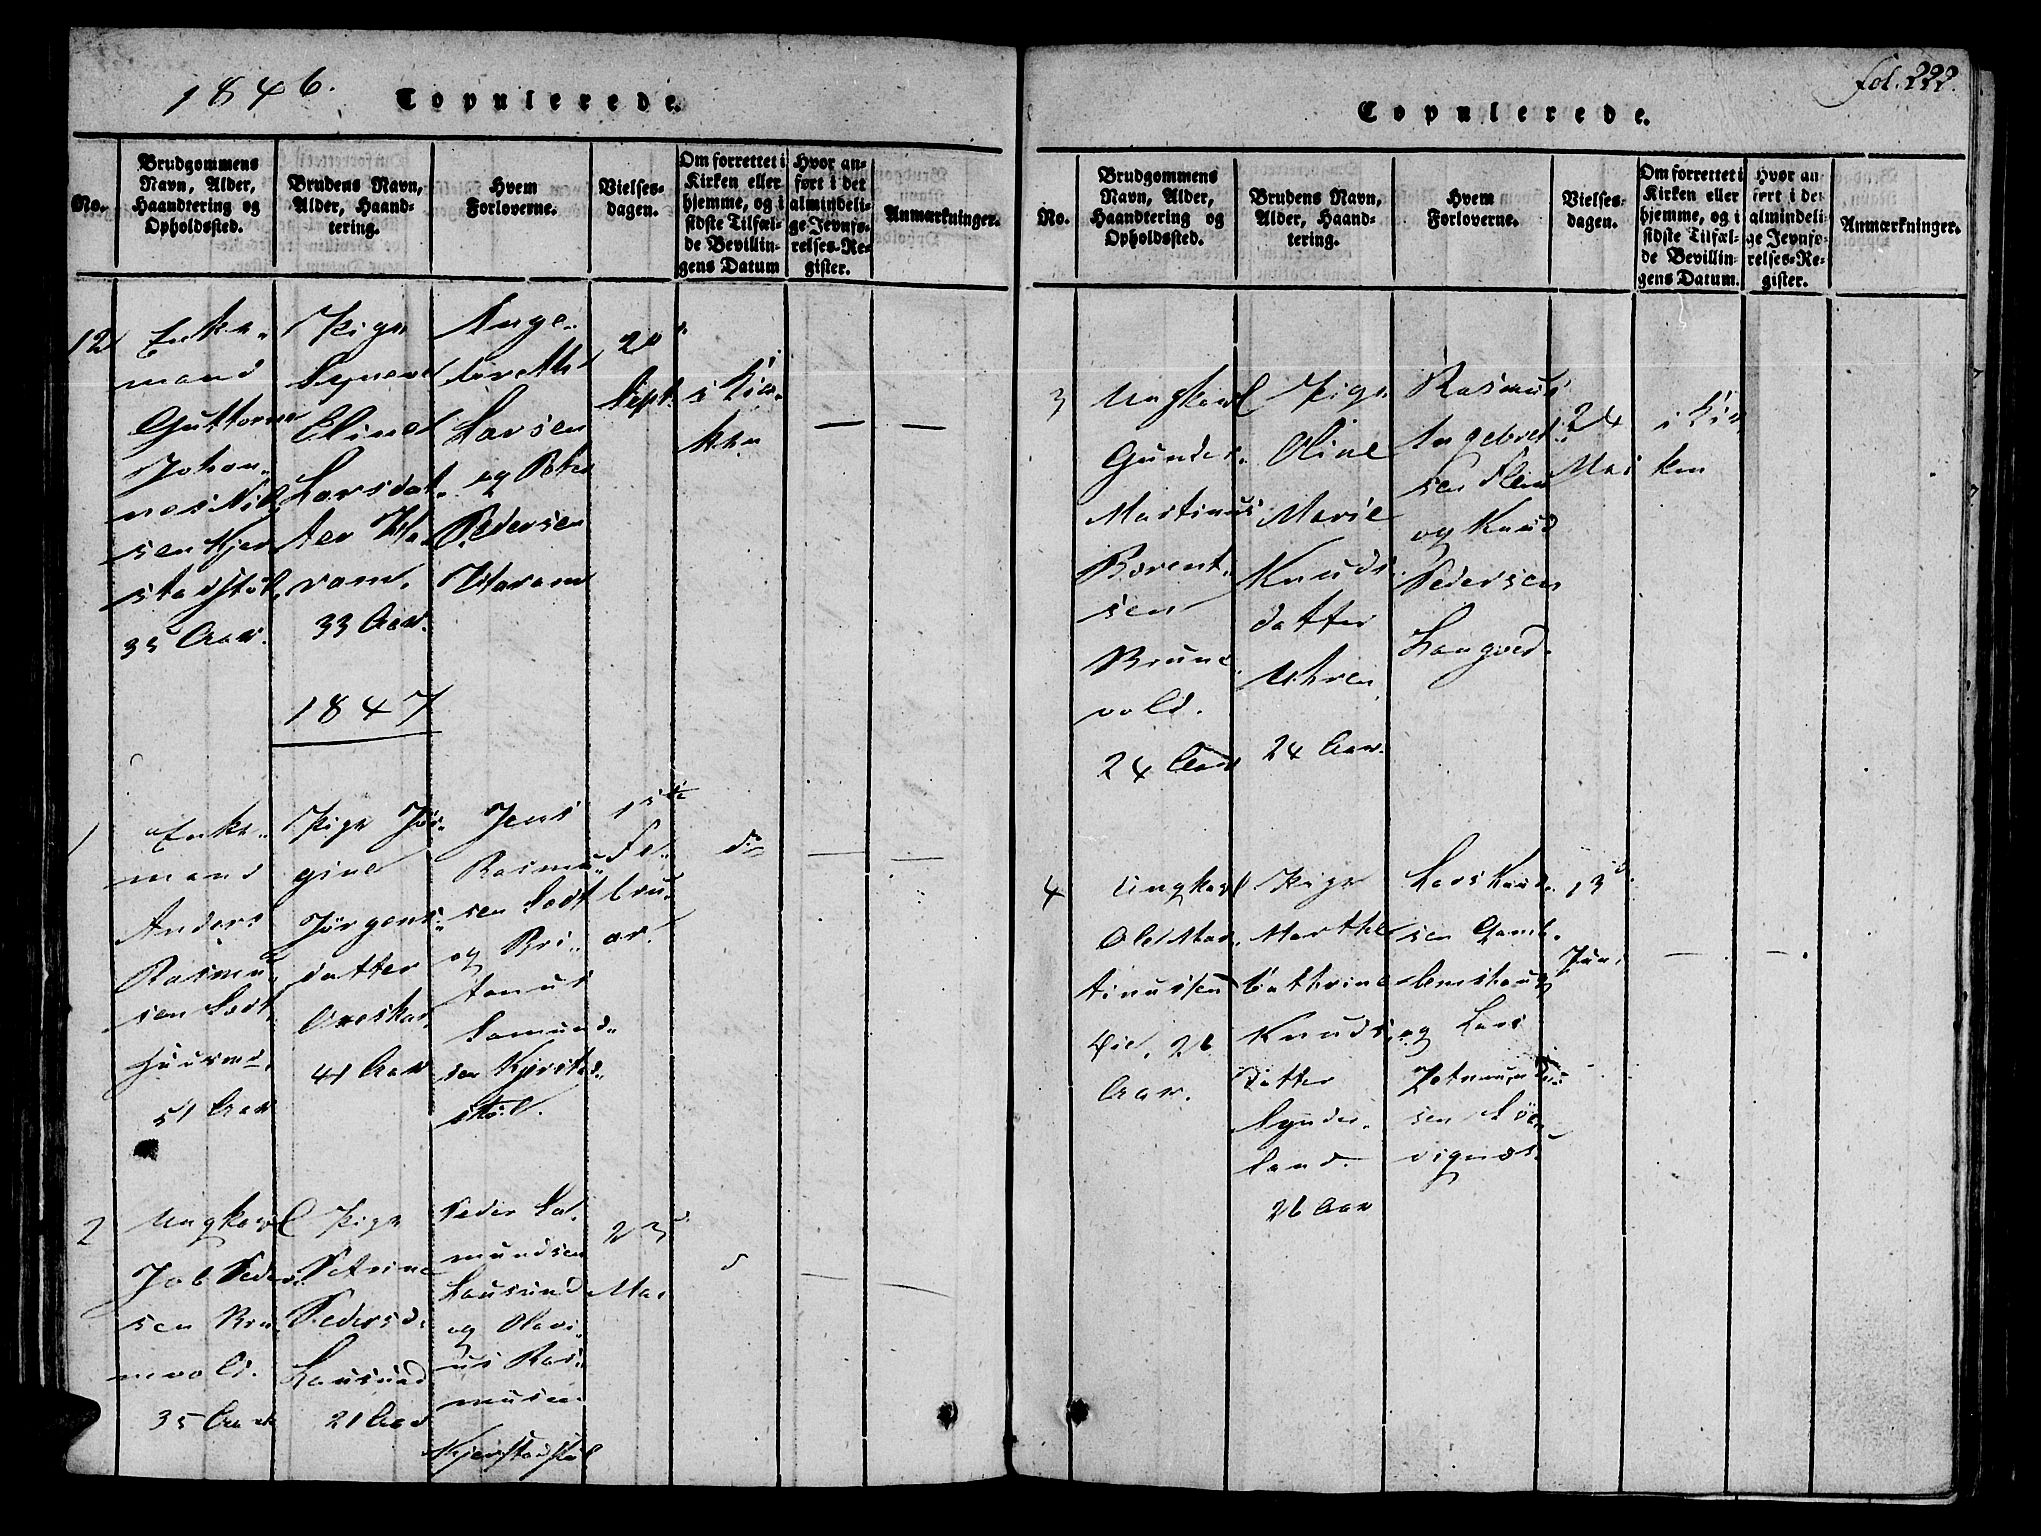 1846.
Copulerede.
No.
Brudgommens
Navn, Alder,
Haandtering og
Opholdssted.
Brudens Navn,
Alder, Haand-
tering.
Hvem
Forloverne.
Vielses-
dagen.
Om forrettet i
Kirken eller
hjemme, og i
sidste Tilfæl-
de Bevillin-
gens Datum
Hvor an-
ført i det
almindeli-
ge Jevnfø-
relses-Re-
gister.
Anmærkninger.
12
Enke-
mand
Guttorm
Johan-
nes Nil-
sen Kjer
stadstøl,
35 Aar.
Pige
Eline
Larsdat-
ter Ha-
ram,
33 Aar.
Ange-
breth
Larsen
og Peter
Pedersen
Haram
20
Sept.
i Kir-
ken
1847
1
Enke-
mand
Anders
Rasmu-
sen
Huusmd.
51 Aar
Pige Jør-
gine
Jørgens-
datter
41 Aar
Jens
Rasmu-
sen
og Bri-
tanus
Samund-
sen Kjerstad-
støl.
15de
Fe-
bru-
ar.
do
2
Ungkarl
Job Peder-
sen Bru-
nvold.
35 Aar
Pige
Petrine
Pedersd.
Lausund
21 Aar
Peder Sal-
mundsen
Lausund
og Olavi-
us Ras-
musen
Kjerstadstøl
23
Mai
d
fol. 222.
Copulerede.
No.
Brudgommens
Navn, Alder,
Haandtering og
Opholdssted.
Brudens Navn,
Alder, Haand-
tering.
Hvem
Forloverne.
Vielses-
dagen.
Om forrettet i
Kirken eller
hjemme, og i
sidste Tilfæl-
de Bevillin-
gens Datum.
Hvor an
ført i det
almindeli
ge Jevnfø-
relses-Re-
gister.
Anmærkninger.
3
Ungkarl
Gunder
Martinus
Berent-
sen
Brune
vold.
24 Aar
Pige
Oline
Marie
Knuds
datter
Uhren
24 Aar.
Rasmus
Angebret-
sen Flem
og Knud
Pedersen
Langved.
24
Mai
i Kir
ken
4
Ungkarl
Ole Mar-
tinussen
26
Aar.
Pige
Marthe
Cathrine
Knuds-
datter
Synder-
land.
26 Aar
Lars Knud-
sen Gaml-
emshaug
og Lars
sen Løe-
vignæs.
13
Juni